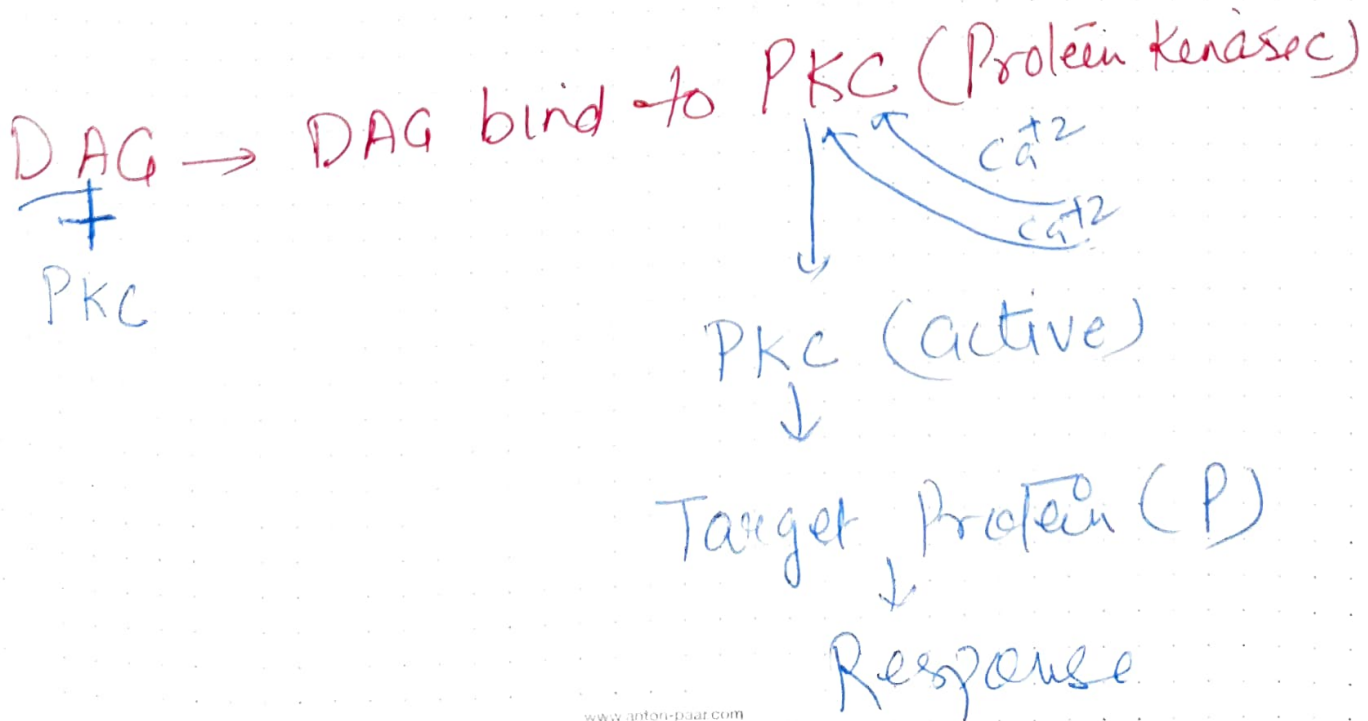 DAG → DAG bind to PKC (Protein Kenasec)
+
PKC
Ca+2
Ca+2
PKC (active)
Target Protein (P)
Response
www.anton-paar.com